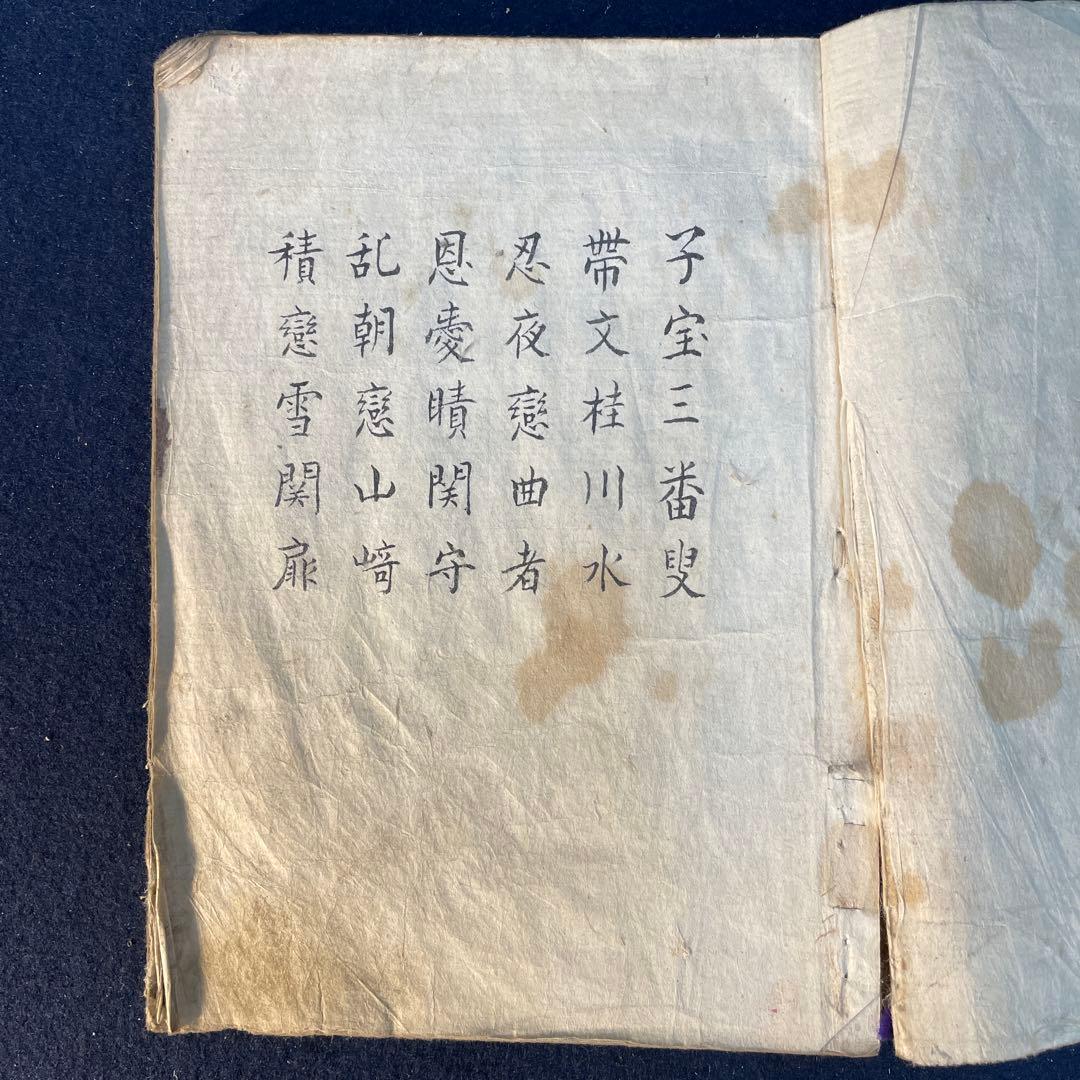 子宝三番叟
帶文桂川水
忍夜戀曲者
恩愛瞔関守
乱朝戀山﨑
積戀雪関扉